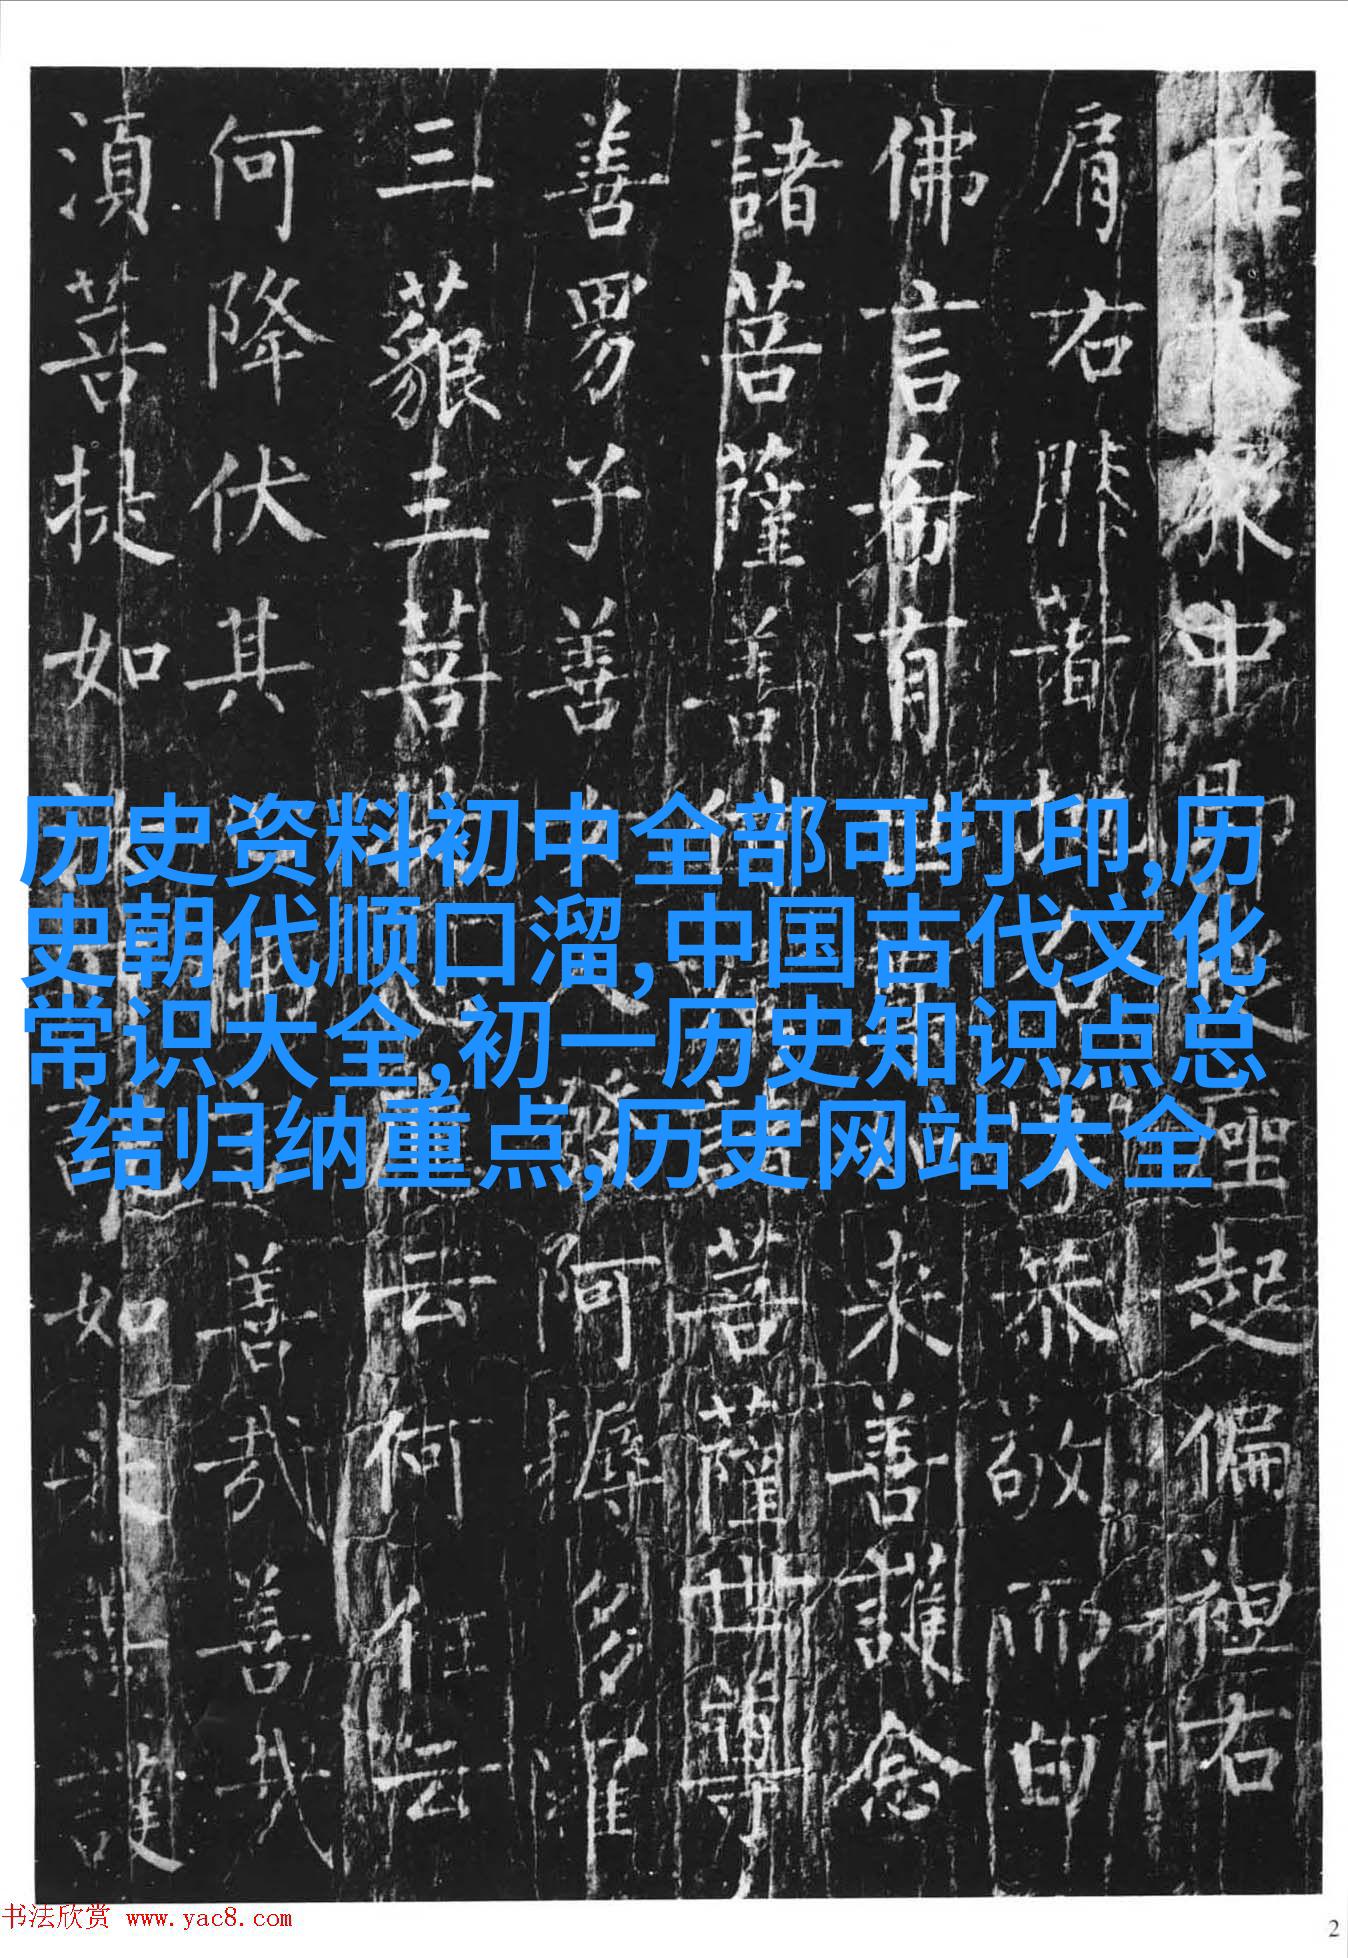 在大眾中即座起偏袒右
肩右膝著地合恭敬而白
佛言希有來善護念
諸菩薩善付諸菩薩世尊
善男子善女人發阿耨多羅
三藐三菩提云何住云
何降伏其佛言善哉善哉
須菩提如說如來善護
历史资料初中全部可打印,历
史朝代顺口溜,中国古代文化
常识大全,初一历史知识点总
结归纳重点,历史网站大全
书法欣赏 www.yac8.com
2